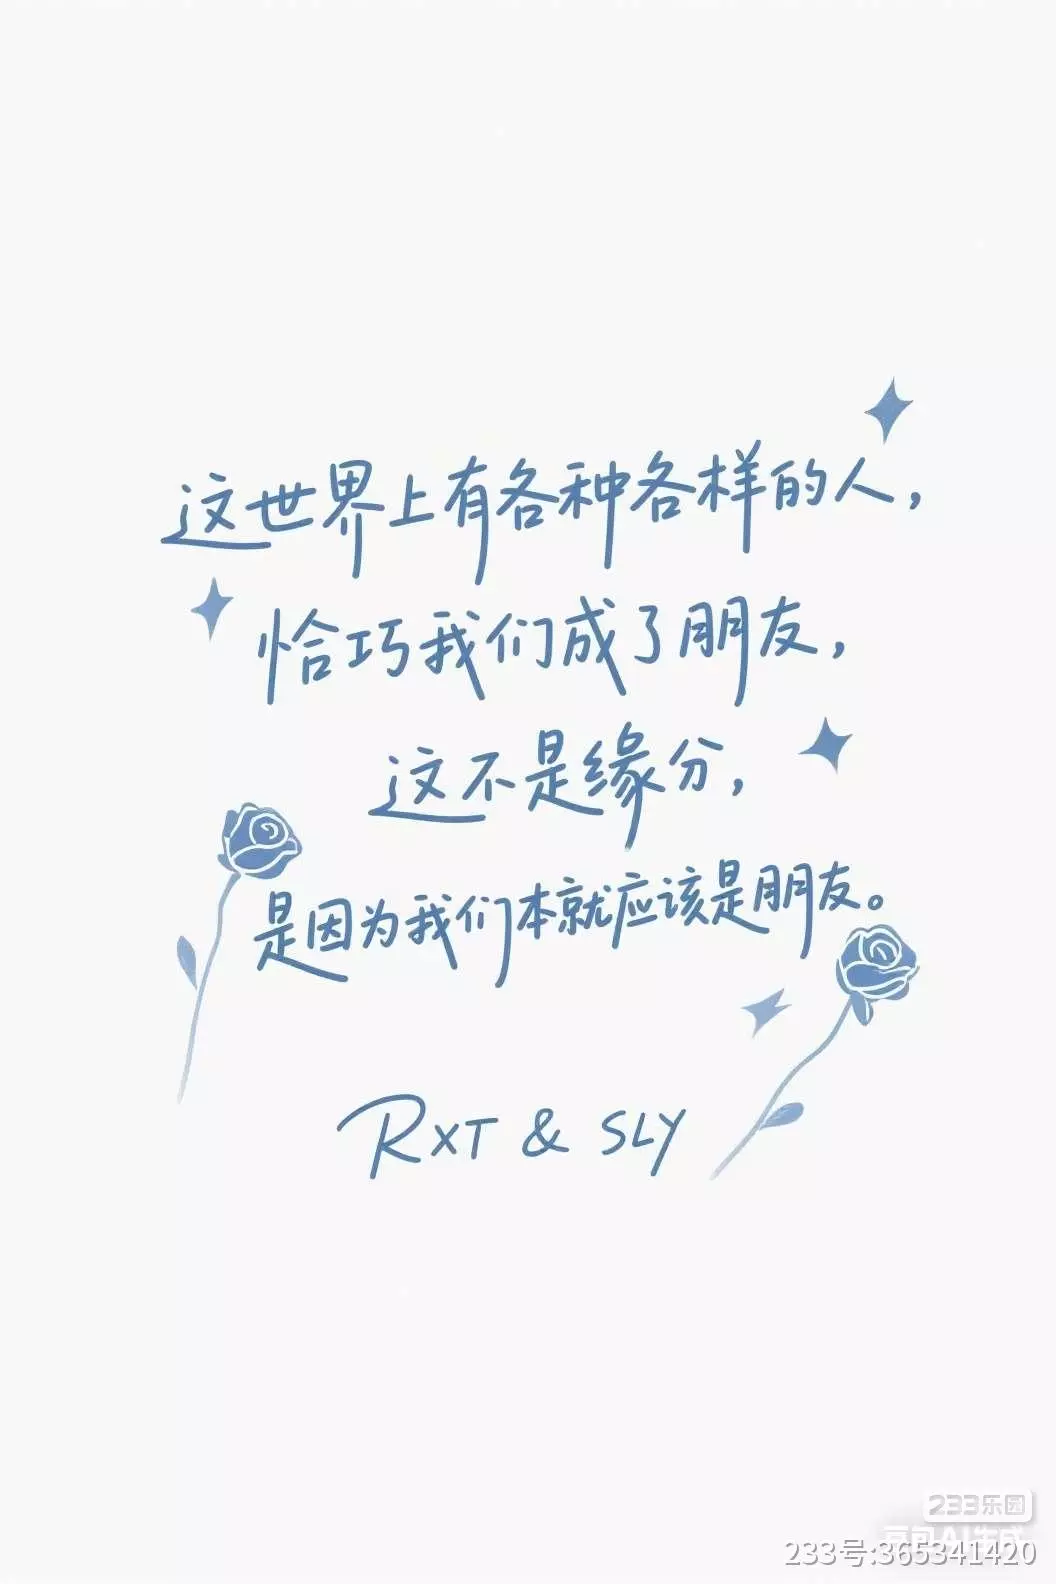 这世界上有各种各样的人，
恰巧我们成了朋友，
这不是缘分，
是因为我们本就应该是朋友。
RXT & SLY
233乐园
豆包AI生成
233号:365341420